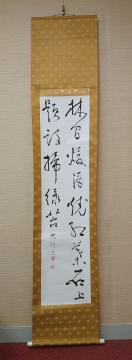 林間煖酒燒紅葉石上
題詩掃綠苔